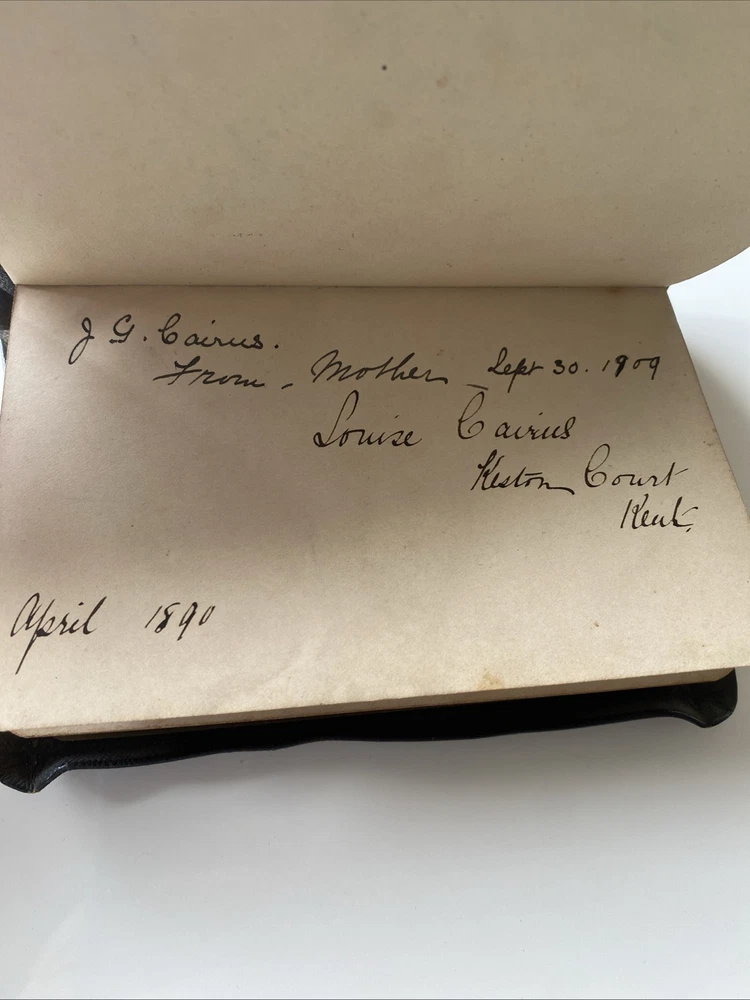 J G. Cairns.
From - Mother - Sept 30. 1909
Louise Cairns
Keston Court
Kent.
April 1890